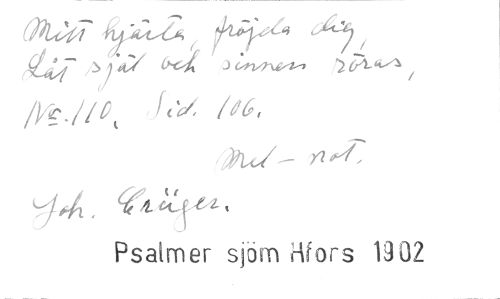 Mitt hjärta, fröjda dig,
Låt själ och sinnen röras,
No. 110, Sid. 106.
Mel-not.
Joh. Crüger.
Psalmer sjöm Hfors 1902